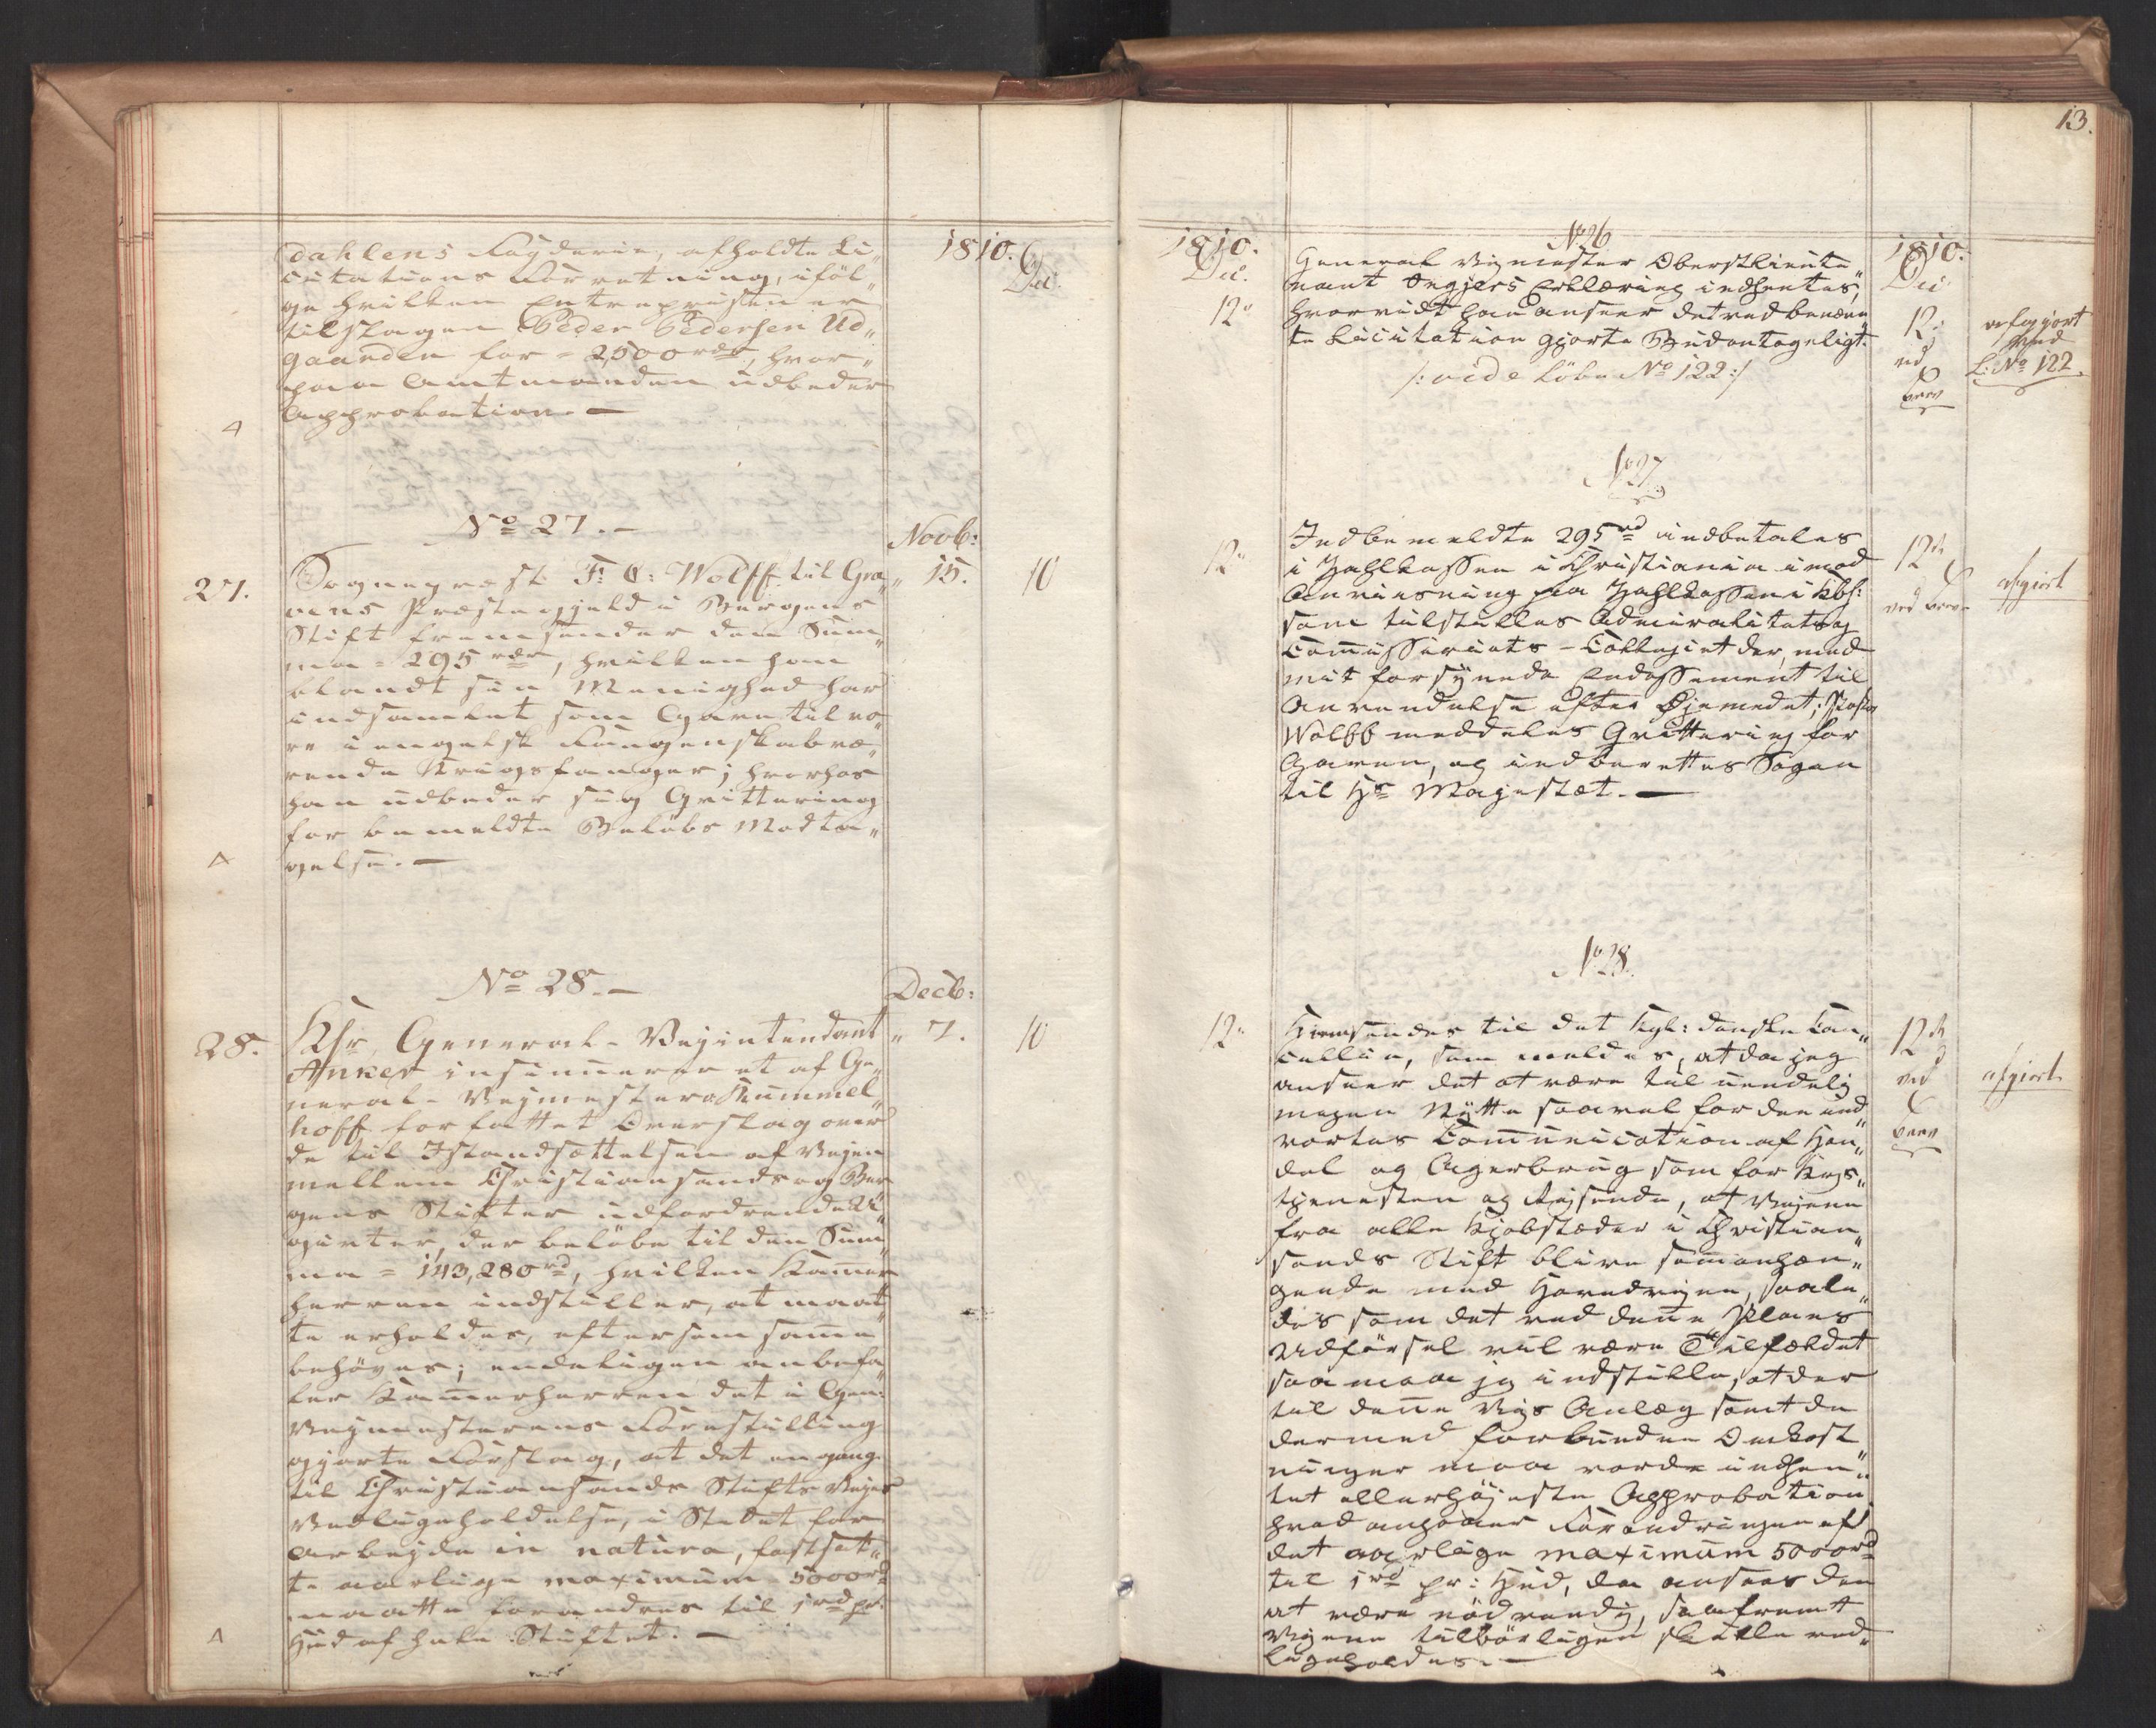 1810.
Dec:
dahlens Fogderie, afholdte Li„
citations Forretning, iföl„
ge hvilken Entreprisen er
tilslagen Peder Pedersen Ud„
gaarden for = 2,500 rdr, hvor„
paa Amtmanden udbeder
Approbation. —
4
No 27. —
Novb:
27.
Sognepræst F: C: Wolff til Gra„
vens Præstegjeld i Bergens
Stift fremsender den Sum„
ma = 295 rdr, hvilken han
blandt sin Menighed har
indsamlet som Gave til vo„
re i engelsk Fangenskab væ„
rende Krigsfanger; hvorhos
han udbeder sig Qvittering
for bemeldte Beløbs Modta„
gelse. —
" 15.
10
A
No 28. —
Decb:
28.
Khr, General-Vejintendant
Anker insinuerer et af Ge„
neral-Vejmester Kummel„
hoff forfattet Overslag over
de til Istandsættelsen af Vejen
mellem Christiansands og Ber„
gens Stifter udfordrende Ud„
givter, der beløbe til den Sum„
ma = 143,280 rd, hvilken Kammer
herren indstiller, at maat„
te erholdes, eftersom samme
behøves; endeligen anbefa„
ler Kammerherren det i Gen:
Vejmesterens Forestilling
gjorte Forslag, at det engang
til Christiansands Stifts Vejes
Vedligeholdelse, i Stedet for
Arbejde in natura, fastsat„
te aarlige maximum 5000 rd
maatte forandres til 1 rd pr:
Hud af hele Stiftet. —
" 7.
10
A
13.
1810.
Dec.
12"
No 26
General Vejmester Oberstlieute„
nant Segjers Erklæring indhentes,
hvorvidt han anseer det ved benævn„
te Licitation gjorte Bud antageligt.
/: vide Löbe No 122 :/
1810.
Dec:
12.
ved
brev
afgiort
ved
L: No 122.
No 27
12"
Indbemeldte 295 rd indbetales
i Zahlkassen i Christiania imod
Anviisning paa Zahlkassen i Kbh:
som tilstilles Admiralitets og
Commissariats-Collegiet der, med
mit forsynede Endossement til
Anvendelse efter Øjemedet;
Wolff meddeles Qvittering for
Gaven, og indberettes Sagen
til Hs Majestæt. —
12
ved brev
afgiort
No 28.
12"
Hjemsendes til det Kgl: danske Can„
cellie, som meldes, at da jeg
anseer det at være til uendelig
megen Nytte saavel for den ind„
vortes Communication af Han„
del og Agerbrug som for Kgs„
tjenesten og Rejsende, at Vejene
fra alle Kjøbstæder i Christian„
sands Stift blive sammenhæn„
gende med Hovedvejen, saale„
des som det ved denne Plans
Udførsel vil være Tilfældet
saa maa jeg indstille, at der
til denne Vejs Anlæg samt de
dermed forbundne Omkost
ninger maa vorde indhen„
tet allerhøjeste Approbation
hvad angaaer Forandringen af
det aarlige maximum 5000 rd
til 1 rd pr: Hud, da ansees den
at være nødvendig, saafremt
Vejene tilbørligen skulle ved„
ligeholdes. —
12
ved
brev
afgiort